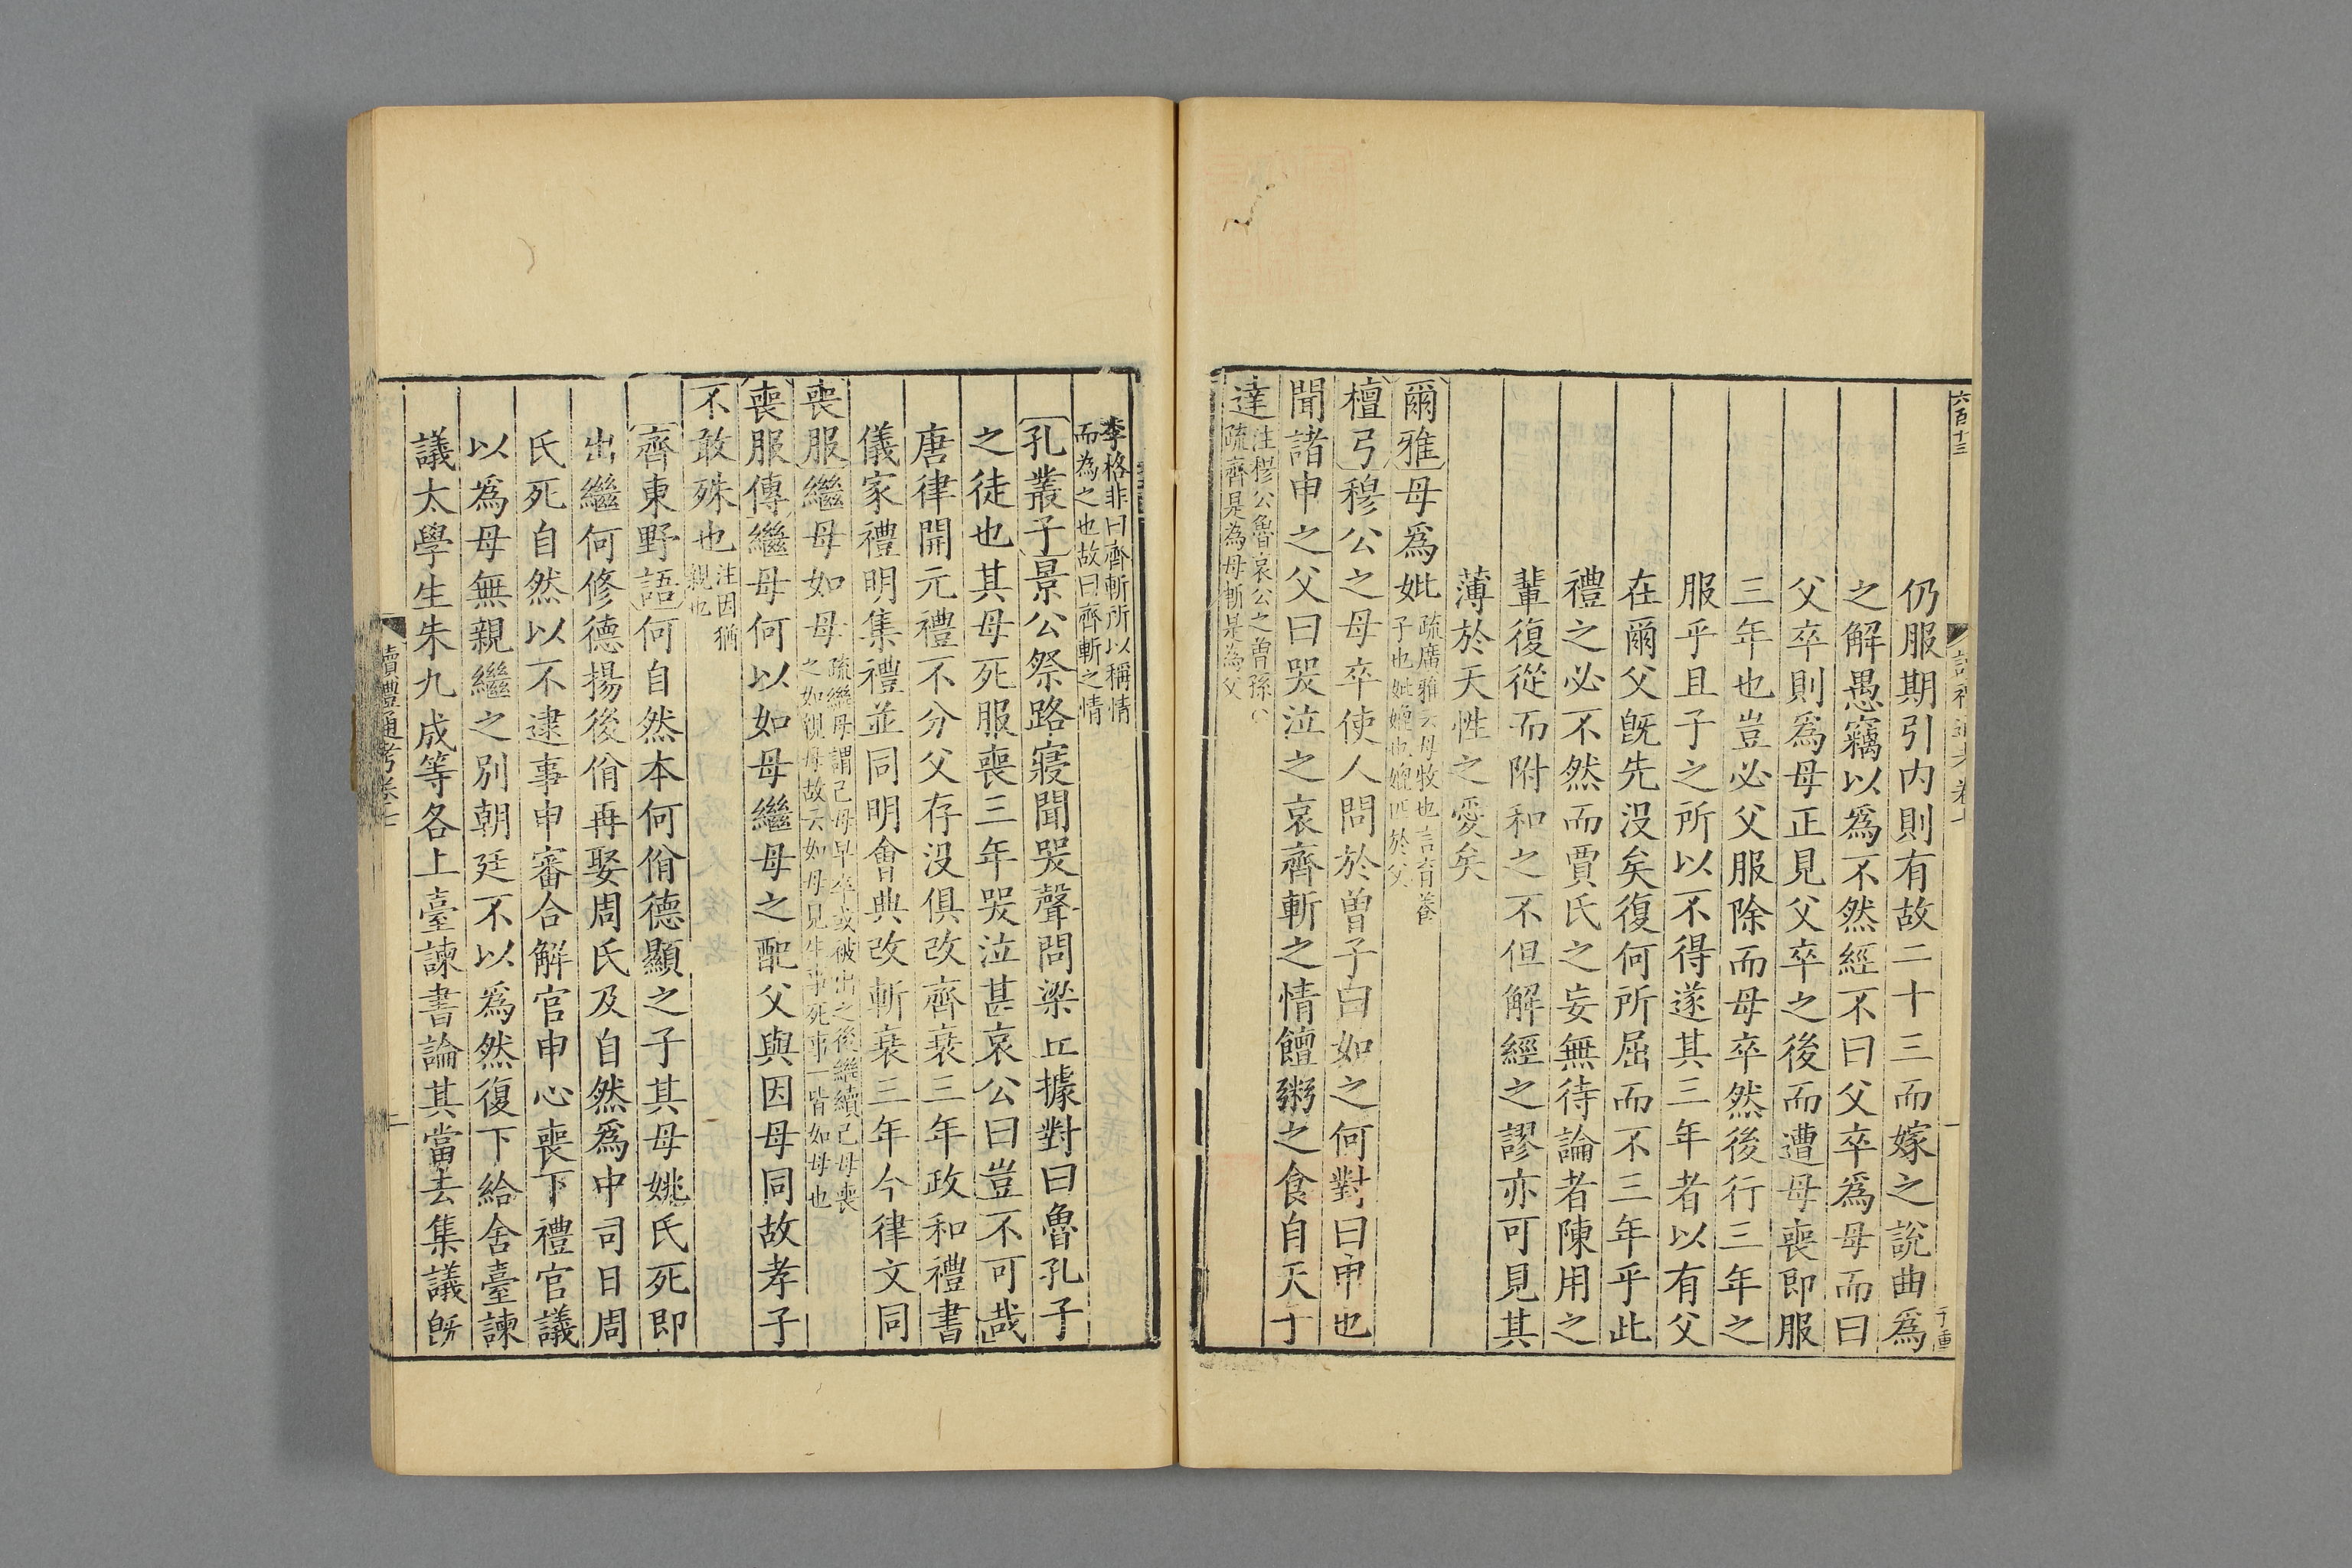 六百十三
讀禮通考卷七
一
于重
仍服期引内則有故二十三而嫁之說曲爲
之解愚竊以爲不然經不曰父卒爲母而曰
父卒則爲母正見父卒之後而遭母喪即服
三年也豈必父服除而母卒然後行三年之
服乎且子之所以不得遂其三年者以有父
在爾父旣先没矣復何所屈而不三年乎此
禮之必不然而賈氏之妄無待論者陳用之
輩復從而附和之不但解經之謬亦可見其
薄於天性之愛矣
爾雅母爲妣疏廣雅云母牧也言育養
子也妣媲也媲匹於父
檀弓穆公之母卒使人問於曾子曰如之何對曰申也
聞諸申之父曰哭泣之哀齊斬之情饘粥之食自天子
達注穆公魯哀公之曾孫○
疏齊是為母斬是為父
李格非曰齊斬所以稱情
而為之也故曰齊斬之情
孔叢子景公祭路寢聞哭聲問梁丘據對曰魯孔子
之徒也其母死服喪三年哭泣甚哀公曰豈不可哉
唐律開元禮不分父存没俱改齊衰三年政和禮書
儀家禮明集禮並同明會典改斬衰三年今律文同
喪服繼母如母疏繼母謂己母早卒或被出之後繼續己母喪
之如親母故云如母見生事死事一皆如母也
喪服傳繼母何以如母繼母之配父與因母同故孝子
不敢殊也注因猶
親也
齊東野語何自然本何佾德顯之子其母姚氏死即
出繼何修德揚後佾再娶周氏及自然爲中司日周
氏死自然以不逮事申審合解官申心喪下禮官議
以爲母無親繼之別朝廷不以爲然復下給舍臺諫
議太學生朱九成等各上臺諫書論其當去集議旣
讀禮通考卷七
二